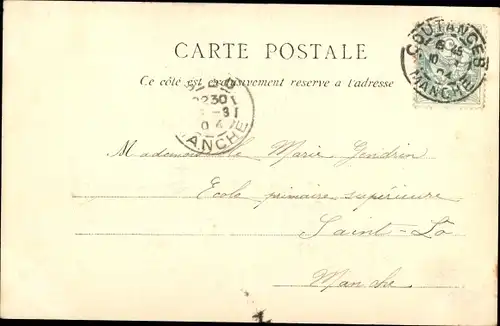 CARTE POSTALE
Ce côté est exclusivement reserve a l'adresse
COUTANCES
MANCHE
2230
MANCHE
Mademoiselle Marie Gendrin
Ecole primaire supérieure
Saint-Lo
Manche